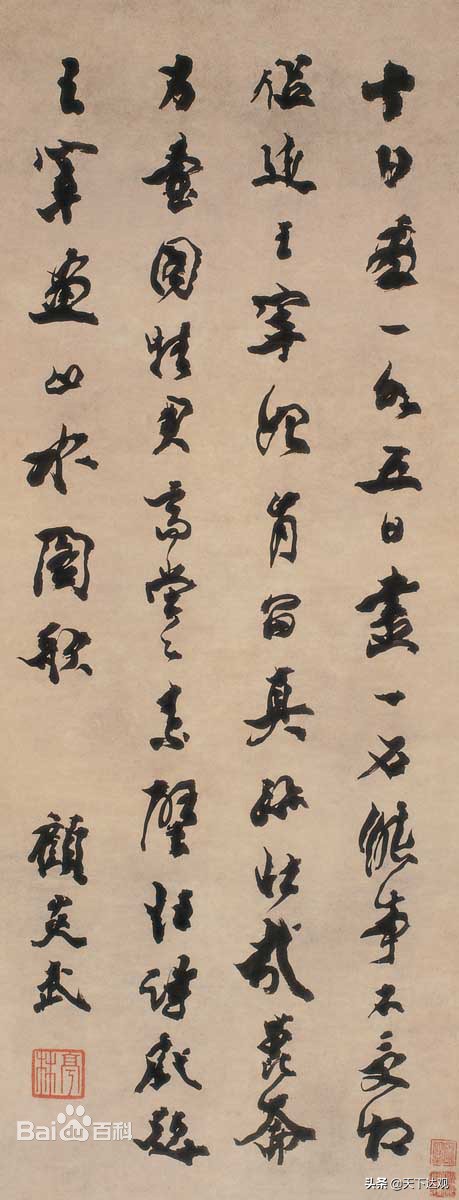 十日畫一水五日畫一石能事不受相
促迫王宰始肯留真跡壯哉崑崙
方壺圖挂君高堂之素壁戲題
王宰畫山水圖歌
顧炎武
亭林
Bai百科
头条 @天下达观